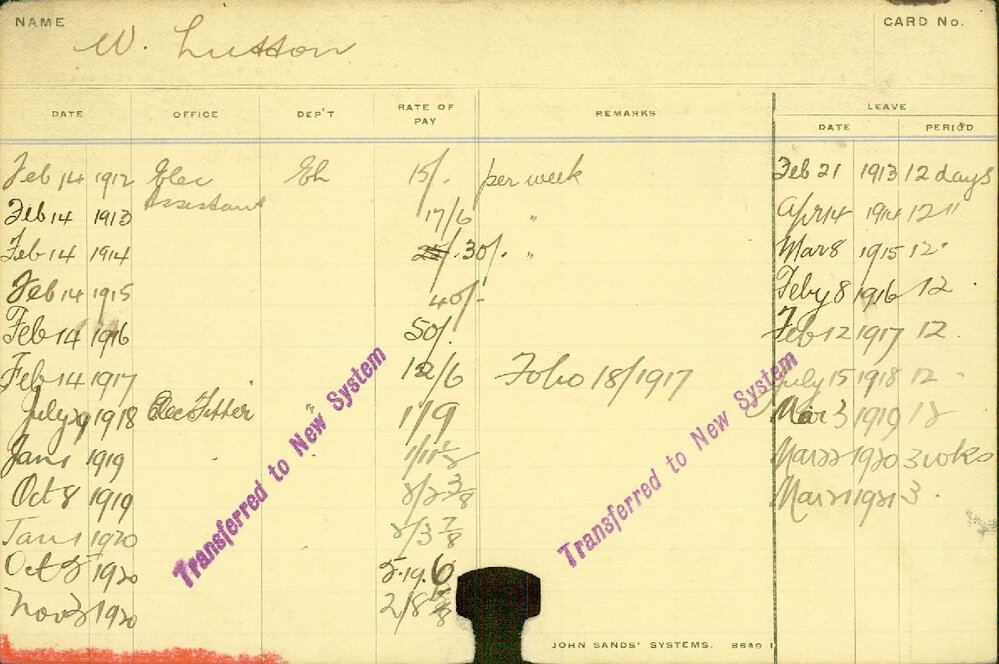 NAME W. Lutton CARD No.
DATE OFFICE DEP'T RATE OF PAY REMARKS LEAVE
DATE PERIOD
Feb 14 1912 Elec Eh 15/. per week Feb 21 1913 12 days
Assistant
Feb 14 1913 17/6 " Apr 14 1914 12 "
Feb 14 1914 30/. " Mar 8 1915 12 "
Feb 14 1915 40/- Feby 8 1916 12
Feb 14 1916 50/. Feb 12 1917 12.
Feb 14 1917 12/6 Folio 18/1917 July 15 1918 12 "
July 29 1918 Elec Fitter " 1/9 Mar 3 1919 18
Jan 1 1919 1/11 1/2 Mar 22 1920 3 wks
Oct 8 1919 2/2 3/8 Mar 21 1921 3 "
Jan 1 1920 2/3 7/8
Oct 5 1920 5.19.6
Nov 3 1920 2/8
Transferred to New System
Transferred to New System
JOHN SANDS' SYSTEMS. 8680 1